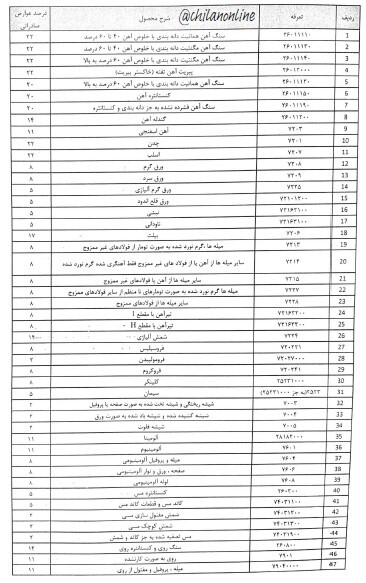 @chilanonline
ردیف تعرفه شرح محصول درصد عوارض صادراتی
1 ۲۶۰۱۱۱۱۰ سنگ آهن هماتیت دانه بندی با خلوص آهن ۴۰ تا ۶۰ درصد ۲۲
2 ۲۶۰۱۱۱۳۰ سنگ آهن مگنتیت دانه بندی با خلوص آهن ۴۰ تا ۶۰ درصد ۲۲
3 ۲۶۰۱۱۱۴۰ سنگ آهن مگنتیت دانه بندی با خلوص آهن ۶۰ درصد به بالا ۲۲
4 ۲۶۰۱۲۰۰۰ پیریت آهن تفته (خاکستر پیریت) ۲۲
5 ۲۶۰۱۱۱۲۰ سنگ آهن هماتیت دانه بندی با خلوص آهن ۶۰ درصد به بالا ۲۰
6 ۲۶۰۱۱۱۵۰ کنسانتره آهن ۲۰
7 ۲۶۰۱۱۱۹۰ سنگ آهن فشرده نشده به جز دانه بندی و کنسانتره ۲۰
8 ۲۶۰۱۱۲۰۰ گندله آهن ۱۴
9 ۷۲۰۳ آهن اسفنجی ۱۱
10 ۷۲۰۱ چدن ۲۲
11 ۷۲۰۷ اسلب ۲۲
12 ۷۲۰۸ ورق گرم ۸
13 ۷۲۰۹ ورق سرد ۸
14 ۷۲۲۵ ورق گرم آلیاژی ۵
15 ۷۲۱۰۱۲۰۰ ورق قلع اندود ۵
16 ۷۲۱۶۲۱۰۰ نبشی ۵
17 ۷۲۱۶۳۱۰۰ ناودانی ۵
18 ۷۲۰۶ بیلت ۱۷
19 ۷۲۱۳ میله ها ،گرم نورد شده به صورت تومار از فولادهای غیر ممزوج ۸
20 ۷۲۱۴ سایر میله ها از آهن یا از فولاد های غیر ممزوج فقط آهنگری شده گرم نورد شده ۸
21 ۷۲۱۵ سایر میله ها از آهن یا فولادهای غیر ممزوج ۸
22 ۷۲۲۷ میله ها گرم نورد شده به صورت تومارهای نا منظم از سایر فولادهای ممزوج ۸
23 ۷۲۲۸ سایر میله ها از فولادهای ممزوج ۸
24 ۷۲۱۶۳۲۰۰ تیرآهن با مقطع I ۸
25 ۷۲۱۶۳۳۰۰ تیرآهن با مقطع H ۸
26 ۷۲۲۴ شمش آلیاژی
27 ۷۲۰۲۲۱ فروسیلیس ۸
28 ۷۲۰۲۷۰۰۰ فرومولیبدن ۳
29 ۷۲۰۲۴۱ فروکروم ۸
30 ۲۵۲۳۱۰۰۰ کلینکر ۸
31 ۲۵۲۳(به جز ۲۵۲۳۱۰۰۰) سیمان ۵
32 ۷۰۰۳ شیشه ریختگی و شیشه تخت شده به صورت صفحه یا پروفیل ۲
33 ۷۰۰۴ شیشه کشیده شده و شیشه باد شده به صورت ورق ۲
34 ۷۰۰۵ شیشه فلوت ۲
35 ۲۸۱۸۲۰۰۰ آلومینا ۱۱
36 ۷۶۰۱ آلومینیوم ۱۱
37 ۷۶۰۴ میله و پروفیل آلومینیومی ۸
38 ۷۶۰۶ صفحه ، ورق و نوار آلومینیومی ۸
39 ۷۶۰۸ لوله آلومینیومی ۸
40 ۲۶۰۳۰۰ کنسانتره مس ۵
41 ۷۴۰۳۱۱۰۰ کاتد مس و قطعات کاتد مس ۵
42 ۷۴۰۳۱۲۰۰ شمش مفتول سازی مسی ۲
43 ۷۴۰۳۱۳۰۰ شمش کوچک مسی ۲
44 ۷۴۰۳۱۹۰۰ مس تصفیه شده به جز کاتد و شمش ۲
45 ۲۶۰۸۰۰ سنگ روی و کنسانتره روی ۱۴
46 ۷۹۰۱ روی به صورت کارنشده ۱۱
47 ۷۹۰۴۰۰۰۰ میله ، پروفیل و مفتول از روی ۱۱